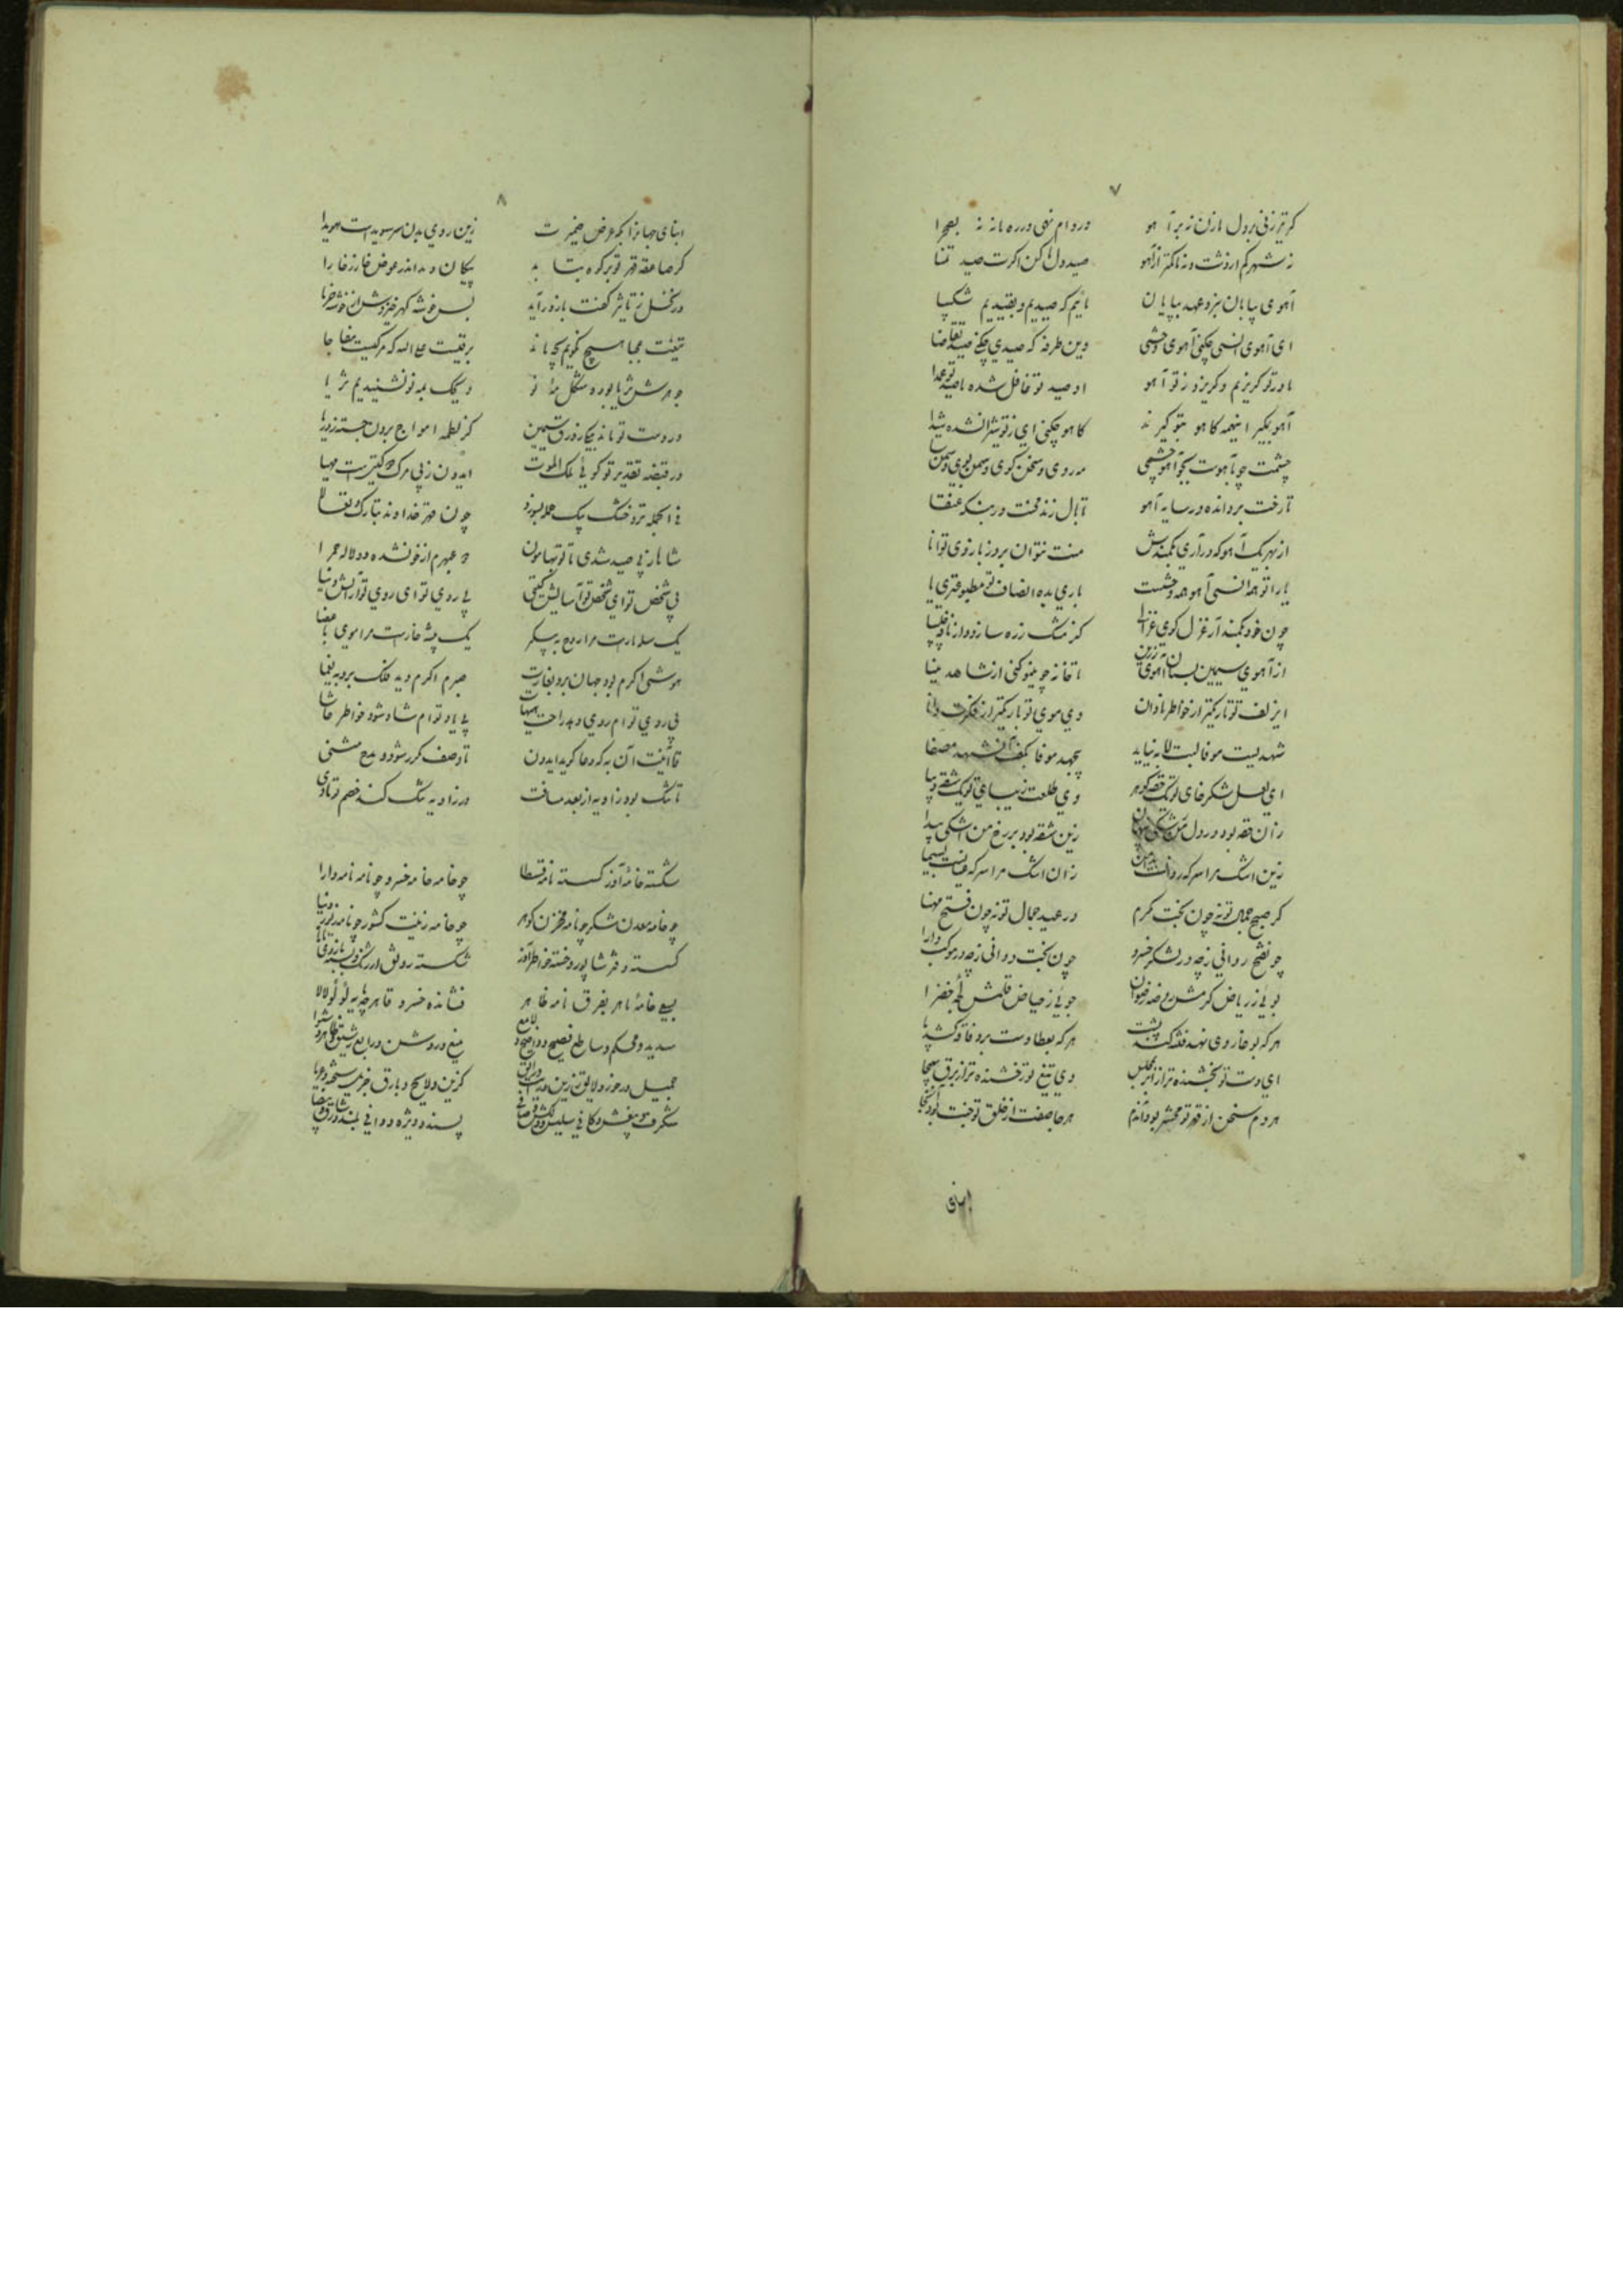 ۷
کر تیر زنی بر دل ما زن نه بر آهو
ور دام نهی در ره ما نه نه بصحرا
نه شهر کم از دشت و نه ما کمتر از آهو
صید دل ما کن اگرت صید تمنا
آهوی بیابان نبرد عهد بپایان
مائیم که صیدیم و بقیدیم شکیبا
ای آهوی انسی چکنی آهوی وحشی
وین طرفه که صیدی چکنی صید تقاضا
ما در تو گریزیم و گریزد ز تو آهو
او صید تو غافل شده ما صید تو عمدا
آهو بگیر اینهمه کاهو بتو گیرند
کاهو چکنی ای ز تو شیران شده شیدا
چشمت چو بآهوست بجو آهو چشمی
مه روی و سخن گوی و سمن بوی و سمن سا
تا رخت برد انده در سایه آهو
تا بال زند محنت در بنگه عنقا
از بهر یک آهو که درآری بکمندش
منت نتوان برد ز بازوی توانا
یارا تو همه انسی آهو همه وحشت
باری بده انصاف تو مطبوعتری یا
چون خود بکمند آر غزل گوی غزالی
کز مشک زره سازد و از نافه چلیپا
از آهوی سیمین بستان آهوی زرین
تا خانه چو مینو کنی از شاهد مینا
ای زلف تو تاریکتر از خاطر نادان
وی موی تو باریکتر از فکرت دانا
شهدیست موفا لبت الا به نیاید
بجهد موفا بکف آن شهد مصفا
ای لعل شکرخای تو یک حقه گوهر
وی طلعت زیبای تو یک شقه دیبا
زان حقه بود در دل من مشکی پنهان
زین شقه بود بر رخ من اشکی پیدا
زین اشک مرا سر که روانست بدامن
زان اشک مرا سر که عیانست بسیما
گر صبح جمال تو نه چون بخت کرم
در عید جمال تو نه چون فتح مهنا
چو نفتح روانی ز چه در لشکر خسرو
چون بخت دوانی ز چه در موکب دارا
بوئی ز ریاض کرمش روضه رضوان
جوئی ز حیاض قلمش لجه خضرا
هر که بوغا روی نهد فتنه کند پشت
هر که بعطا دست برد فاقه کشد پا
ای دست تو بخشنده‌تر از ابر بمجلس
وی تیغ تو رخشنده‌تر از برق بهیجا
هر دم سخن از قهر تو محشر بود آندم
هر جا صفت از خلق تو جنت بود آنجا
ابنای
۸
ابنای جهانرا بکه عرض ضمیرت
زین روی بدن سر سویداست هویدا
گر صاعقه قهر تو بر کوه بتابد
پیکان دمد اندر عوض خار ز خارا
ور نخل ز تاثیر کفت بارور آید
بس خوشه گهر خیزدش از خوشه خرما
تیغت بچه ماند
برقیست علی الله که مرگیست مفاجا
جوهرش ثریا بود و شکل مه نو
در یک مه نو نشنیدیم ثریا
در دست تو ماند بیکی زورق سیمین
کز لطمه امواج برون جسته ز دریا
در قبضه تقدیر تو گوئی ملک الموت
ایدون ز پی مرگ و کثیریست مهیا
فی الجمله تر و خشک بیک حمله بسوزد
چون قهر خداوند تبارک و تعالی
شاها ز پی صید شدی تا تو بهامون
دو عبهرم از خونشده دو لاله حمرا
بی شخص تو ای شخص تو آسایش گیتی
بی روی تو ای روی تو آرایش دنیا
یک سله مارست مرا روح به پیکر
یک بیشه خارست مرا موی باعضا
هوشی اگرم بود جهان برد بغارت
صبرم اگرم دید فلک برد به یغما
بی روی توام روی دهد راحت هیهات
بی یاد توام شاد شود خاطر حاشا
قاآنیت آن به که دعا گوید ایدون
تا وصف مکرر نشود مدح مثنی
تا تنگ بود زاویه از بعد مسافت
در زاویه تنگ کند خصم تو مأوی
شکسته خامه آذر گسسته نامه قسطا
چو خامه خامه خسرو چو نامه نامه دارا
چو خامه معدن شکر چو نامه مخزن گوهر
چو خامه زینت کشور چو نامه زیور دنیا
گسسته دفتر شاپور و خسته خاطر آذر
شکسته رونق ارژنگ و بسته بازوی مانا
بسیع خامه ماهر بفرق نامه ظاهر
فشانده خسرو قاهر چه پایه لؤلؤ لالا
سدید و محکم و ساطع فصیح و واضح و لامع
منیع و روشن و رایع رشیق و ظاهر و شیوا
جمیل و درخور و لایق متین و زین و درست و رایق
گزین و لایح و بارق جزیل و سخته و غرا
شگرف و نغز و کافی سلیس و دلکش و صافی
پسند و ویژه و وافی بلند و شارق و بیضا